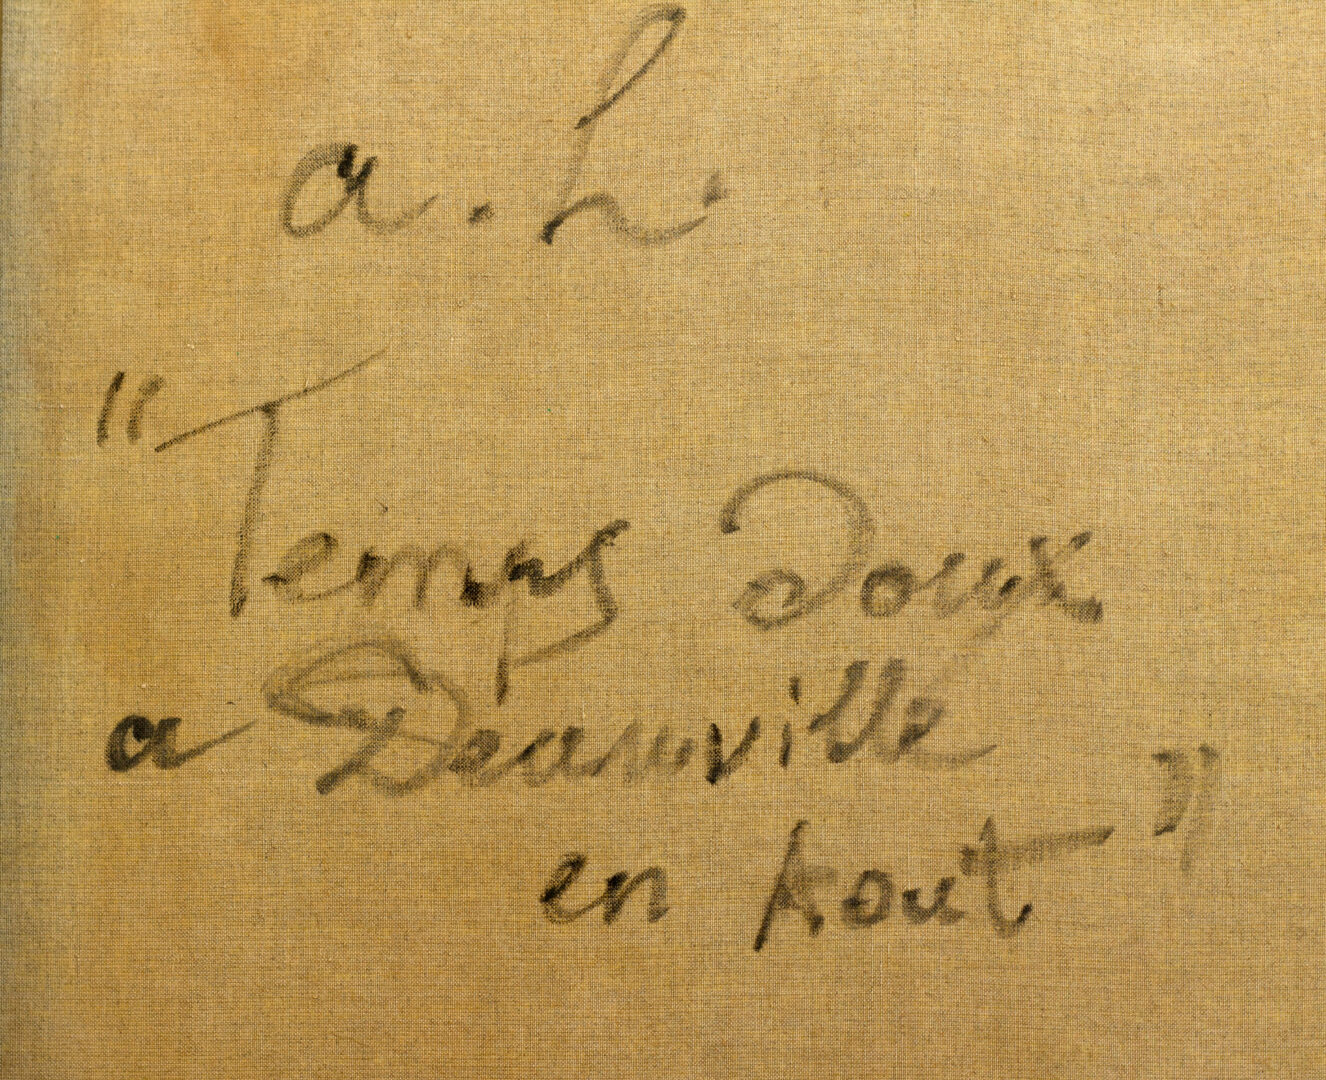 a. L.
"Temps doux
a Deauville
en Aout"